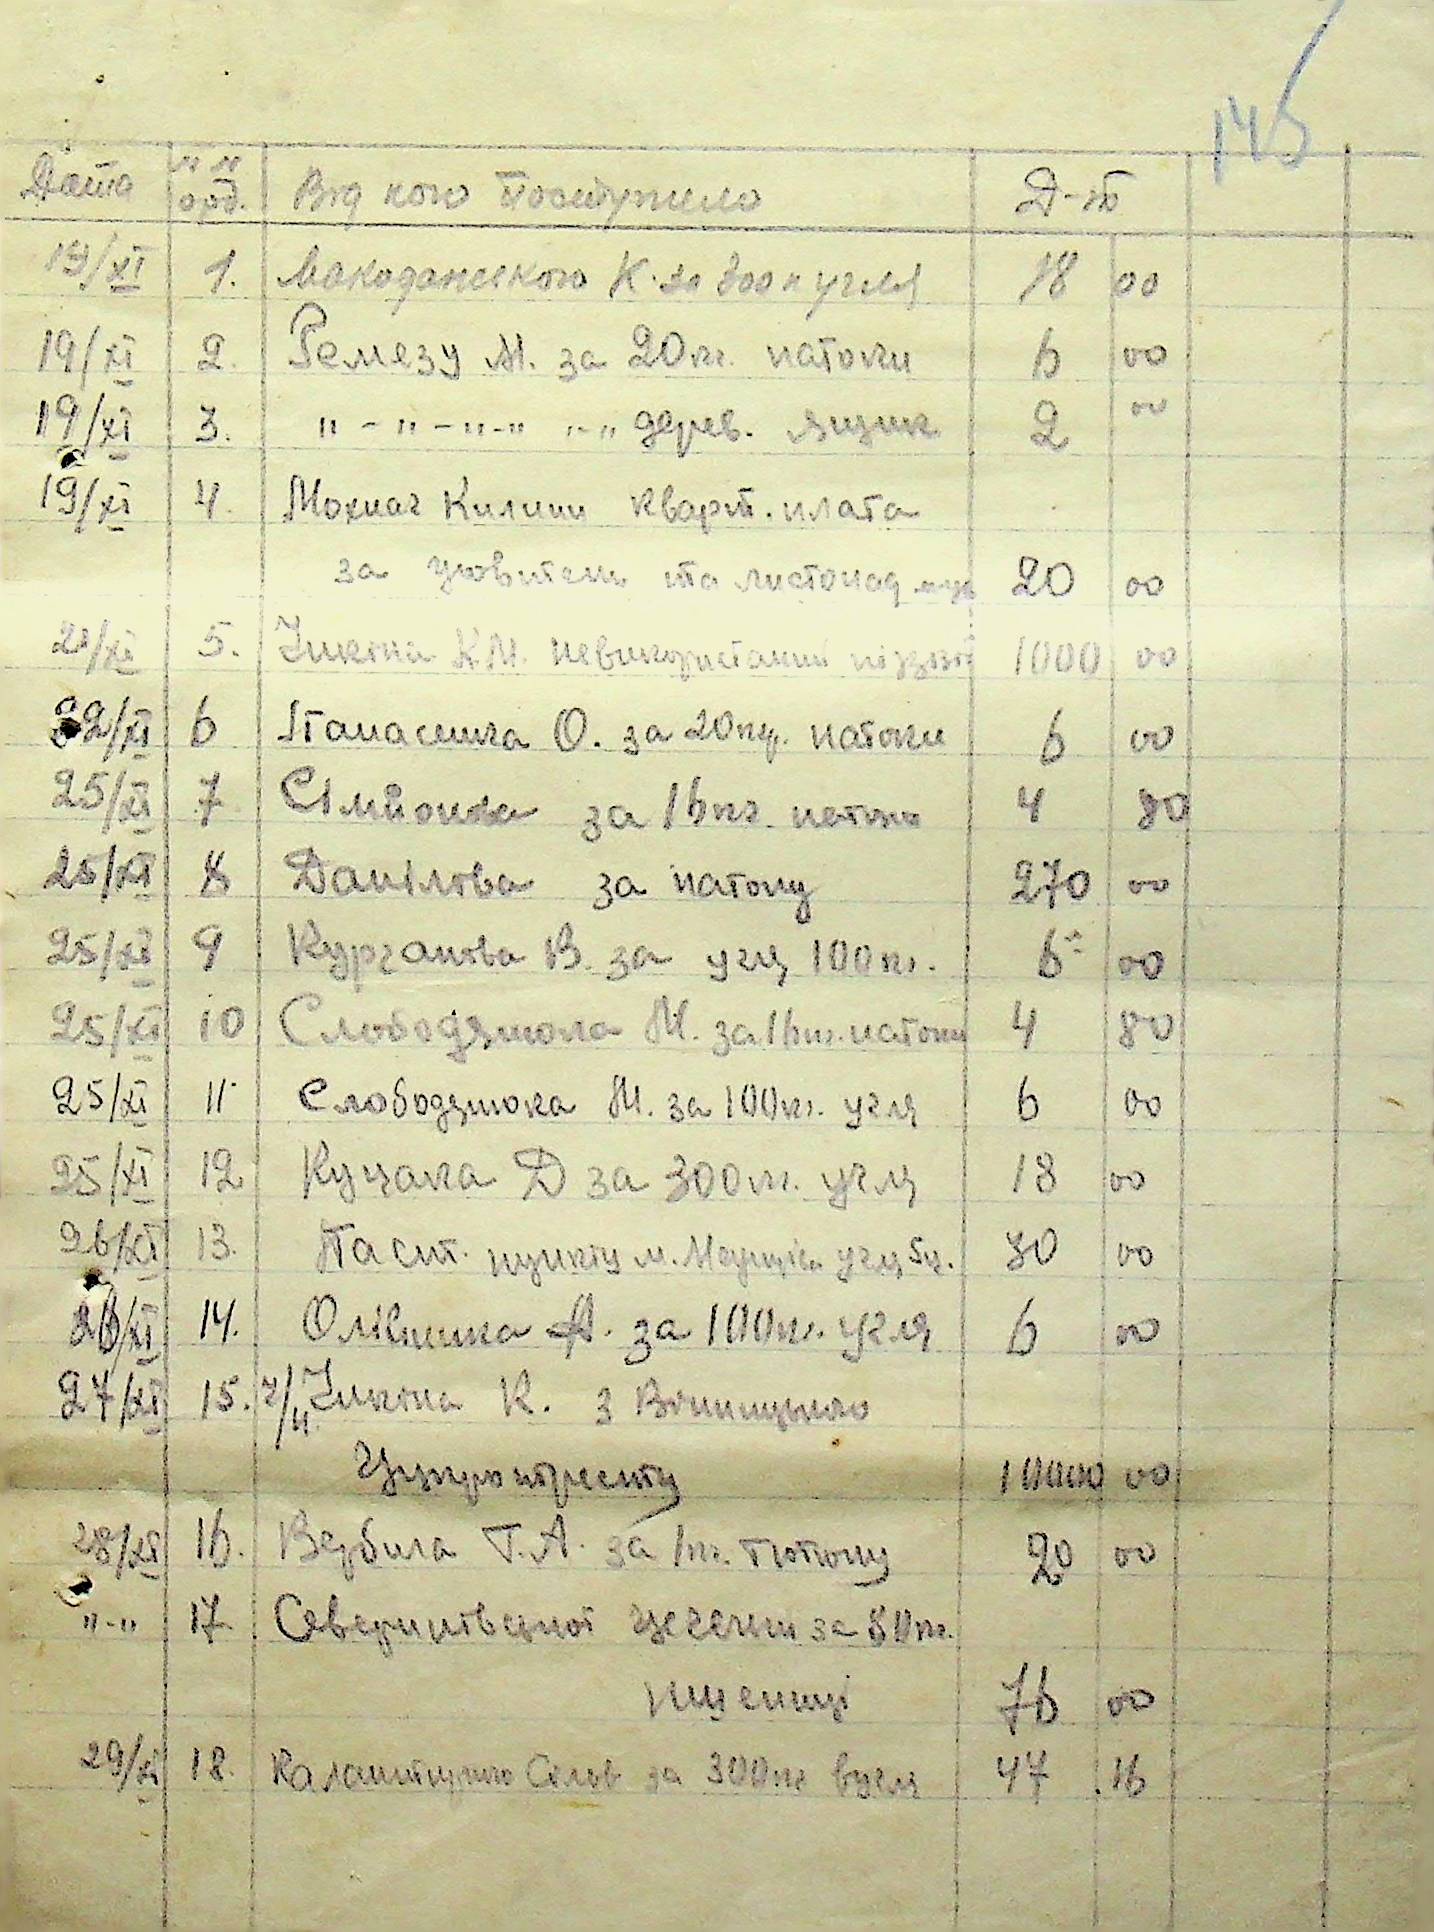 145
Дата №№ орд. Від кого поступило Д-т
19/XI 1. К. за 300 к угля 18 00
19/XI 2. Ремезу М. за 20 кг. патоки 6 00
19/XI 3. " - " - " - " " - " дерев. ящик 2 00
19/XI 4. Мохнач Килини кварт. плата
за жовтень та листопад 20 00
21/XI 5. К.М. невикористаний 1000 00
22/XI 6 Панасенка О. за 20 кг. патоки 6 00
25/XI 7 за 16 кг. патоки 4 80
25/XI 8 Данілова за патоку 270 00
25/XI 9 Курганова В. за угля 100 кг. 6 00
25/XI 10 Слободянюка М. за 16 кг. патоки 4 80
25/XI 11 Слободянюка М. за 100 кг. угля 6 00
25/XI 12 Куцака Д за 300 кг. угля 18 00
26/XI 13. пункту м. угля 5 ц. 30 00
26/XI 14. Олійника А. за 100 кг. угля 6 00
27/XI 15. ч/п К. з Вінницького
Цукротресту 10000 00
28/XI 16. Г.А. за 1 кг. тютюну 20 00
" - " 17 за 80 кг.
пшениці 76 00
29/XI 18. за 300 кг вугля 47 16